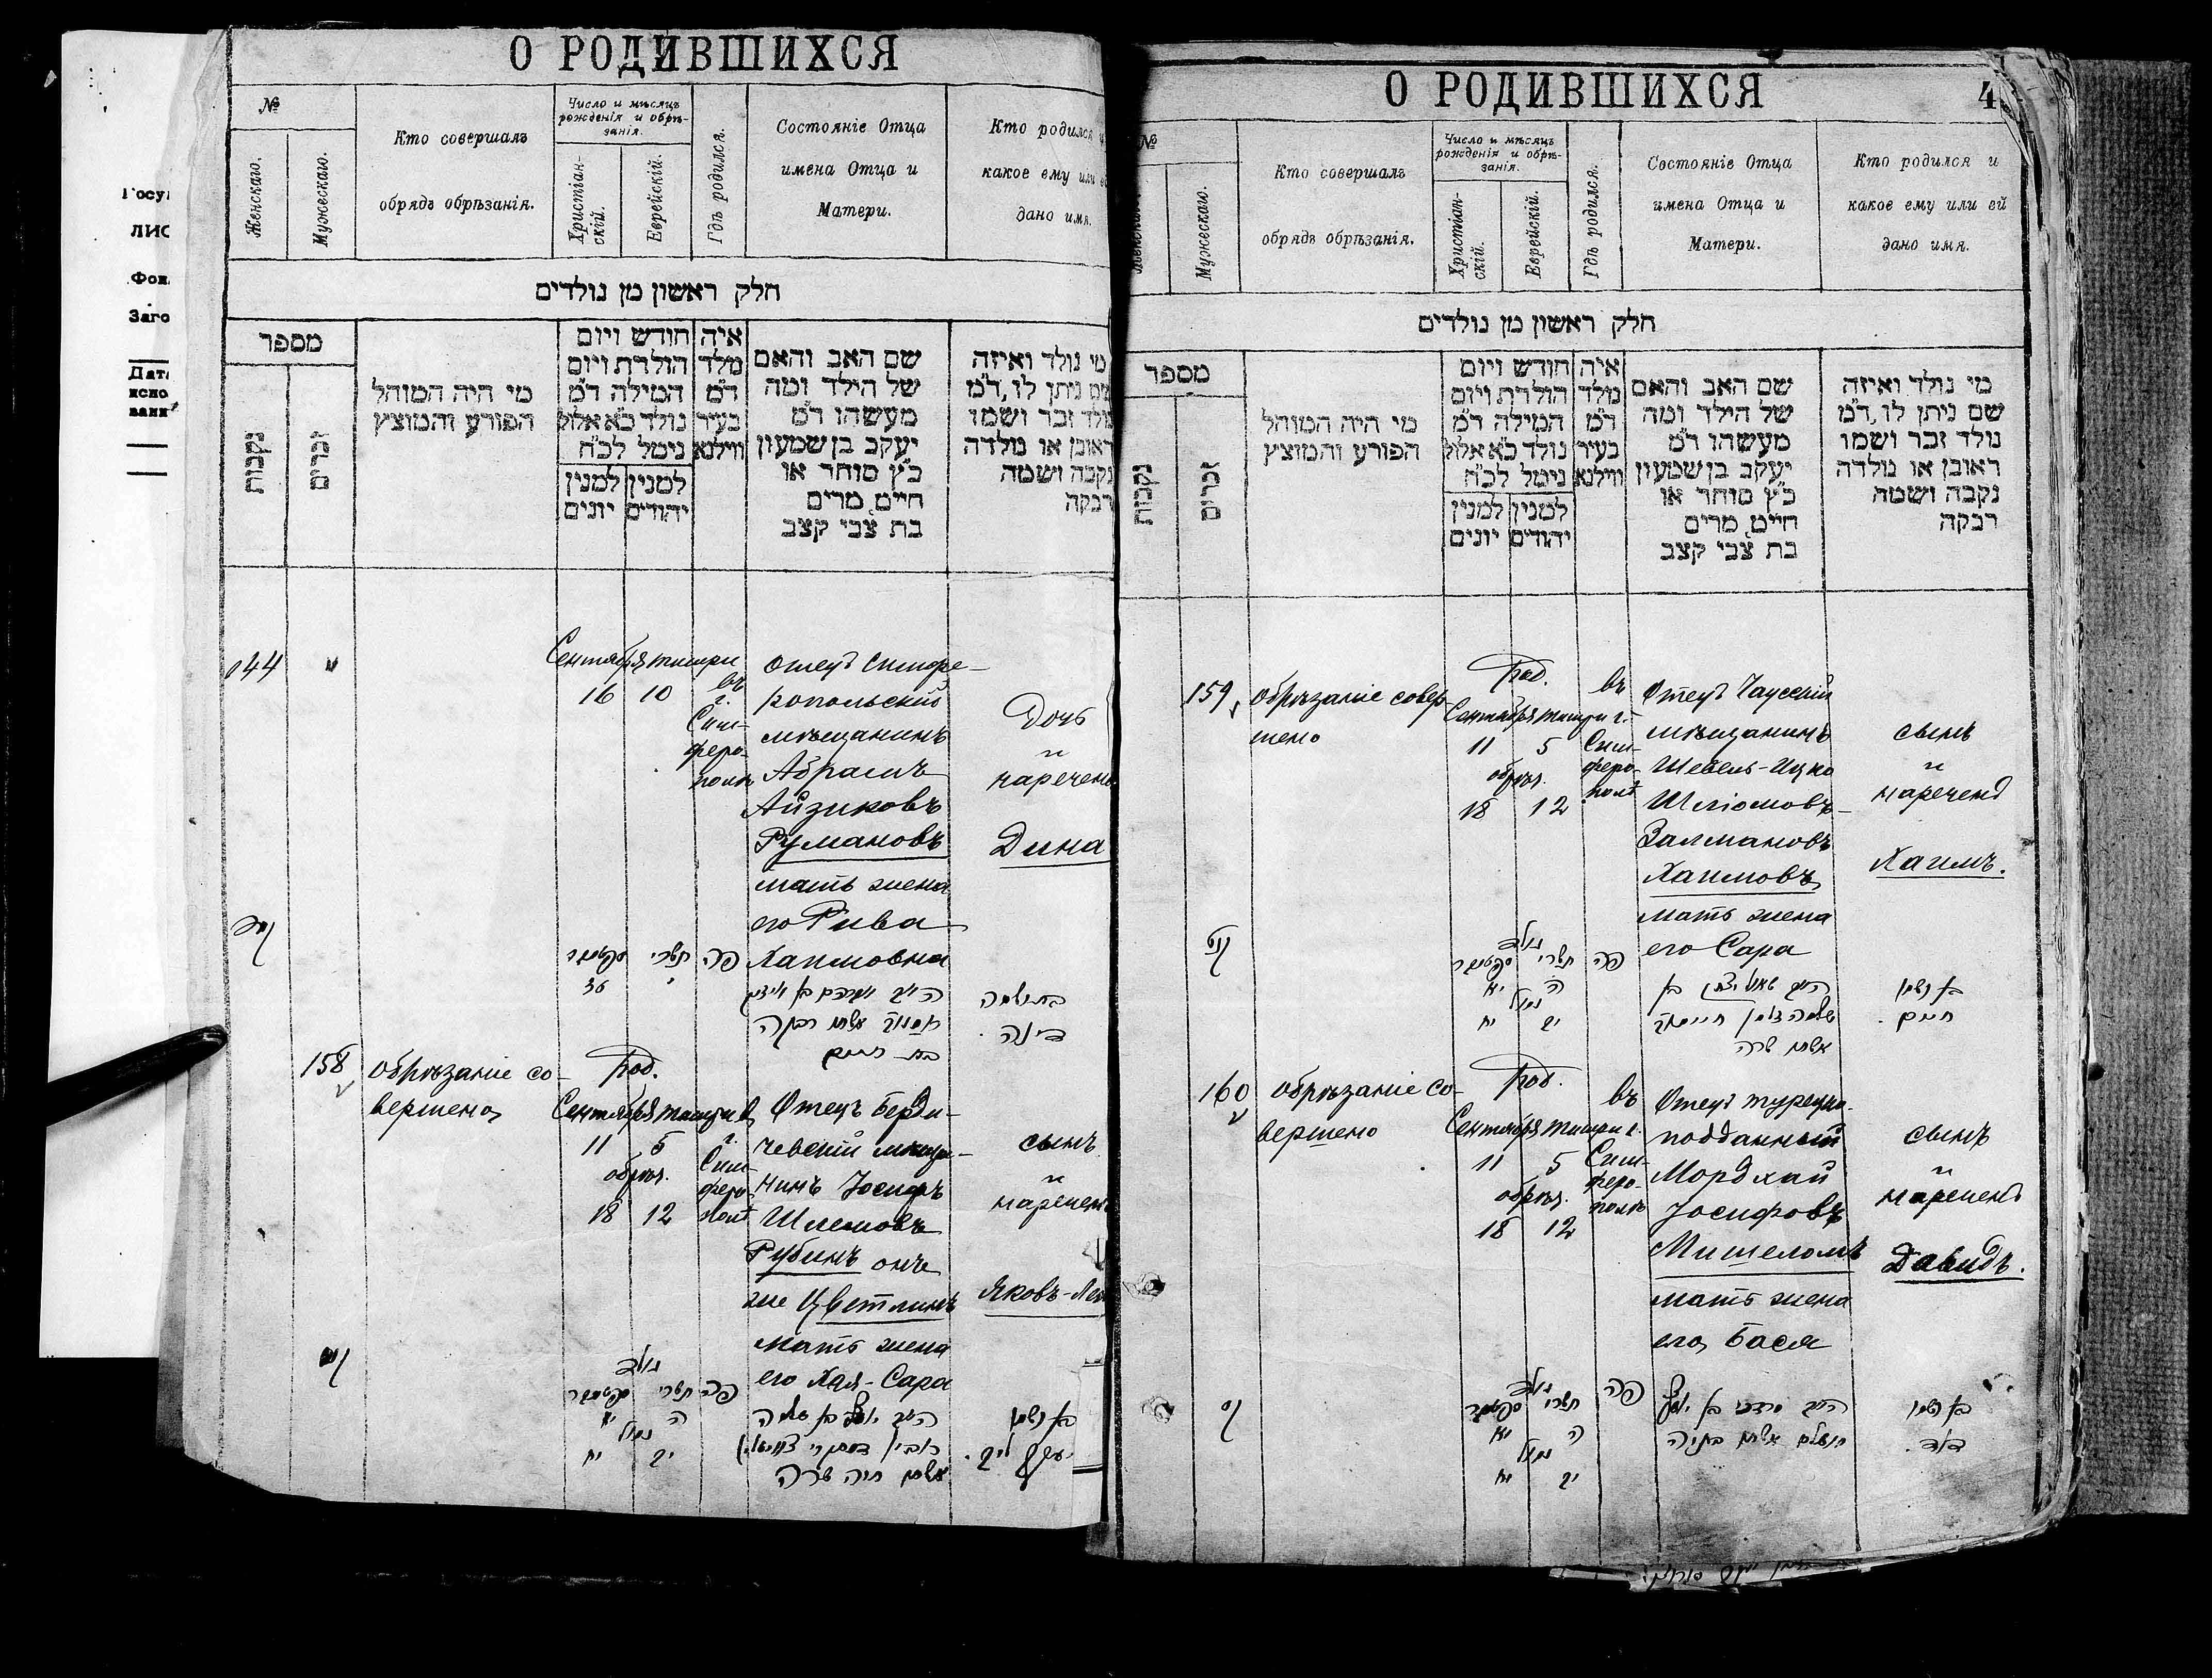 Госу
ЛИС
Фон
Заго
Дат
испо
вани
О РОДИВШИХСЯ
№
Женскаго.
Мужескаго.
Кто совершалъ
обрядъ обрѣзанія.
Число и мѣсяцъ
рожденія и обрѣ-
занія.
Христіан-
скій.
Еврейскій.
Гдѣ родился.
Состояніе Отца
имена Отца и
Матери.
Кто родился и
какое ему или ей
дано имя.
חלק ראשון מן נולדים
מספר
נקבות
זכרים
מי היה המוהל
הפורע והמוצץ
חודש ויום
הולדת ויום
המילה ד"מ
נולד כ"א אלול
נימל לכ"ח
למנין יהודים
למנין יונים
איה
מלד
ד"מ
בעיר
ווילנא
שם האב והאם
של הילד ומה
מעשהו ד"מ
יעקב בן שמעון
כ"ץ סוחר או
חייט מרים
בת צבי קצב
מי נולד ואיזה
שם ניתן לו, ד"מ
נולד זכר ושמו
ראובן או נולדה
נקבה ושמה
רבקה
144
"
Сентября тишри
16 10
въ
г.
Сим-
феро-
полѣ
Отецъ Симфе-
ропольскій
мѣщанинъ
Абрамъ
Айзиковъ
Румановъ
мать жена
его Рива
Хаимовна
Дочь
и
наречена
Дина
ספטעמבר תשרי פה
בת ושמה
דינה
בת חיים
158
Обрѣзаніе со-
вершено
Род.
Сентября тишри въ
11 5
г.
обрѣз.
18 12
Сим-
феро-
полѣ
Отецъ Берди-
чевскій мѣща-
нинъ Іосифъ
Шлемовъ
Рубинъ онъ
же Цветлинъ
мать жена
его Хая-Сара
сынъ
и
нареченъ
Яковъ-Ле
נולד
ספטעמבר תשרי פה
יא ה
נמול
יח יב
בן ושמו
יעקב ליב
אשתו חיה שרה
О РОДИВШИХСЯ
4
№
Женскаго.
Мужескаго.
Кто совершалъ
обрядъ обрѣзанія.
Число и мѣсяцъ
рожденія и обрѣ-
занія.
Христіан-
скій.
Еврейскій.
Гдѣ родился.
Состояніе Отца
имена Отца и
Матери.
Кто родился и
какое ему или ей
дано имя.
חלק ראשון מן נולדים
מספר
נקבות
זכרים
מי היה המוהל
הפורע והמוצץ
חודש ויום
הולדת ויום
המילה ד"מ
נולד כ"א אלול
נימל לכ"ח
למנין יהודים
למנין יונים
איה
מלד
ד"מ
בעיר
ווילנא
שם האב והאם
של הילד ומה
מעשהו ד"מ
יעקב בן שמעון
כ"ץ סוחר או
חייט מרים
בת צבי קצב
מי נולד ואיזה
שם ניתן לו, ד"מ
נולד זכר ושמו
ראובן או נולדה
נקבה ושמה
רבקה
159
Обрѣзаніе совер-
шено
Род.
Сентября тишри г.
11 5
обрѣз.
18 12
въ
Сим-
феро-
полѣ
Отецъ Чаусскій
мѣщанинъ
Шевель-Ицко
Шліомовъ-
Залмановъ
Хаимовъ
мать жена
его Сара
сынъ
и
нареченъ
Хаимъ.
נולד
ספטעמבר תשרי פה
יא ה
נמול
יח יב
אשתו שרה
בן ושמו
חיים
160
Обрѣзаніе со-
вершено
Род.
Сентября тишри г.
11 5
обрѣз.
18 12
въ
Сим-
феро-
полѣ
Отецъ турецко-
подданный
Мордхай
Іосифовъ
Мишеломъ
мать жена
его Бася
сынъ
и
нареченъ
Давидъ.
נולד
ספטעמבר תשרי פה
יא ה
נמול
יח יב
מרדכי בן יוסף
אשתו בתיה
בן ושמו
דוד